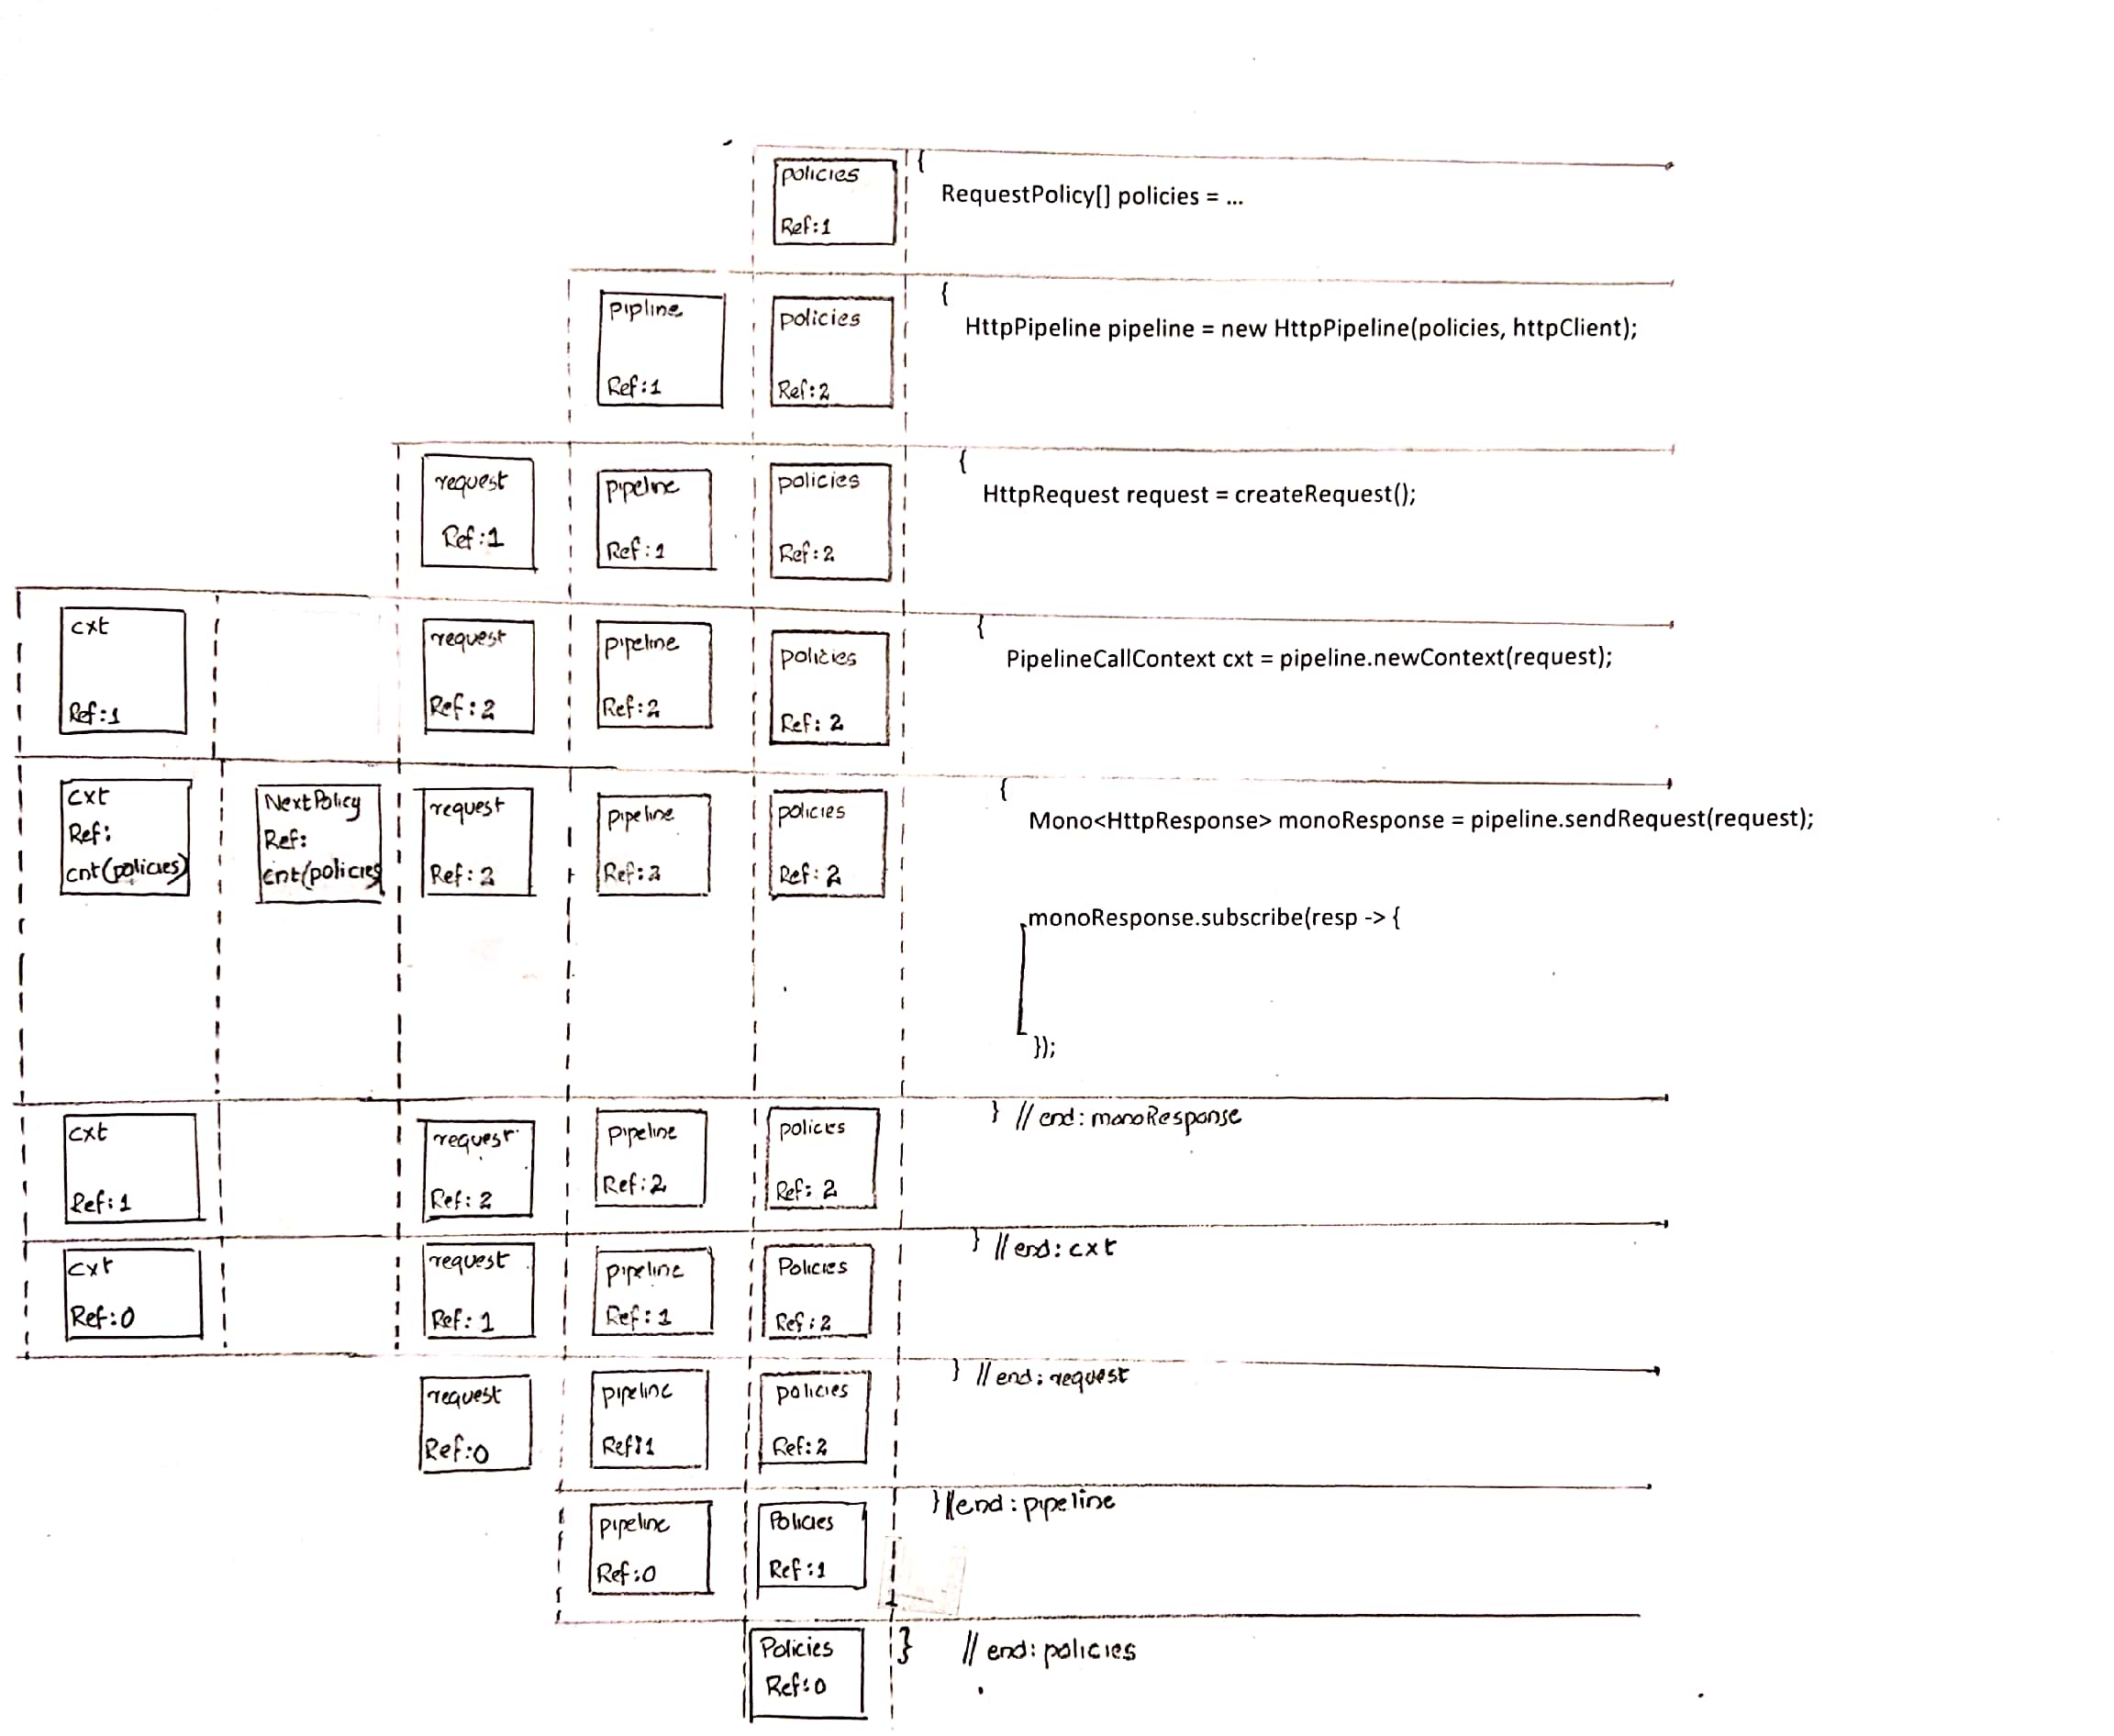 policies
Ref:1
{
RequestPolicy[] policies = ...
pipline
Ref:1
policies
Ref:2
{
HttpPipeline pipeline = new HttpPipeline(policies, httpClient);
request
Ref:1
pipeline
Ref:1
policies
Ref:2
{
HttpRequest request = createRequest();
cxt
Ref:1
request
Ref:2
pipeline
Ref:2
policies
Ref:2
{
PipelineCallContext cxt = pipeline.newContext(request);
cxt
Ref:
cnt(policies)
NextPolicy
Ref:
cnt(policies
request
Ref:2
pipeline
Ref:2
policies
Ref:2
{
Mono<HttpResponse> monoResponse = pipeline.sendRequest(request);
monoResponse.subscribe(resp -> {
});
cxt
Ref:1
request
Ref:2
pipeline
Ref:2
policies
Ref:2
} // end: monoResponse
cxt
Ref:0
request
Ref:1
pipeline
Ref:1
Policies
Ref:2
} // end: cxt
request
Ref:0
pipeline
Ref:1
policies
Ref:2
} // end: request
pipeline
Ref:0
Policies
Ref:1
} // end: pipeline
Policies
Ref:0
} // end: policies